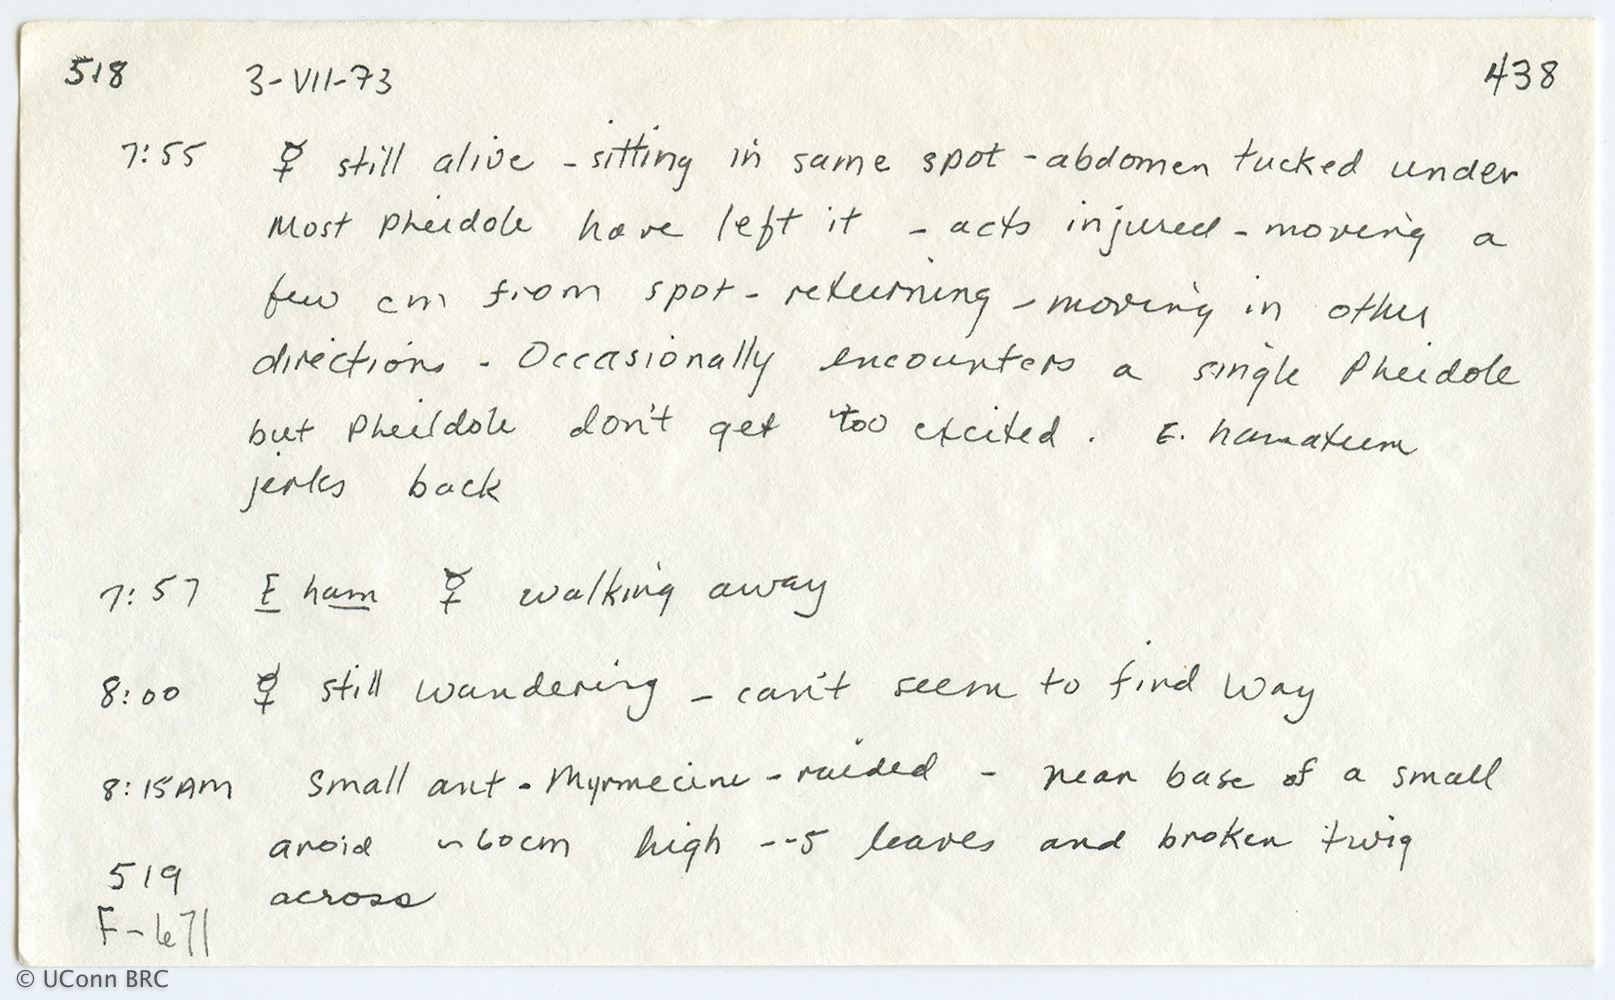 518 3-VII-73 438
7:55 ☿ still alive - sitting in same spot - abdomen tucked under
Most Pheidole have left it - acts injured - moving a
few cm from spot - returning - moving in other
directions - Occasionally encounters a single Pheidole
but Pheidole don't get too excited. E. hamatum
jerks back
7:57 E ham ☿ walking away
8:00 ☿ still wandering - can't seem to find way
8:15AM Small ant - Myrmecine - raided - near base of a small
aroid ~60cm high --5 leaves and broken twig
519 across
F-671
© UConn BRC